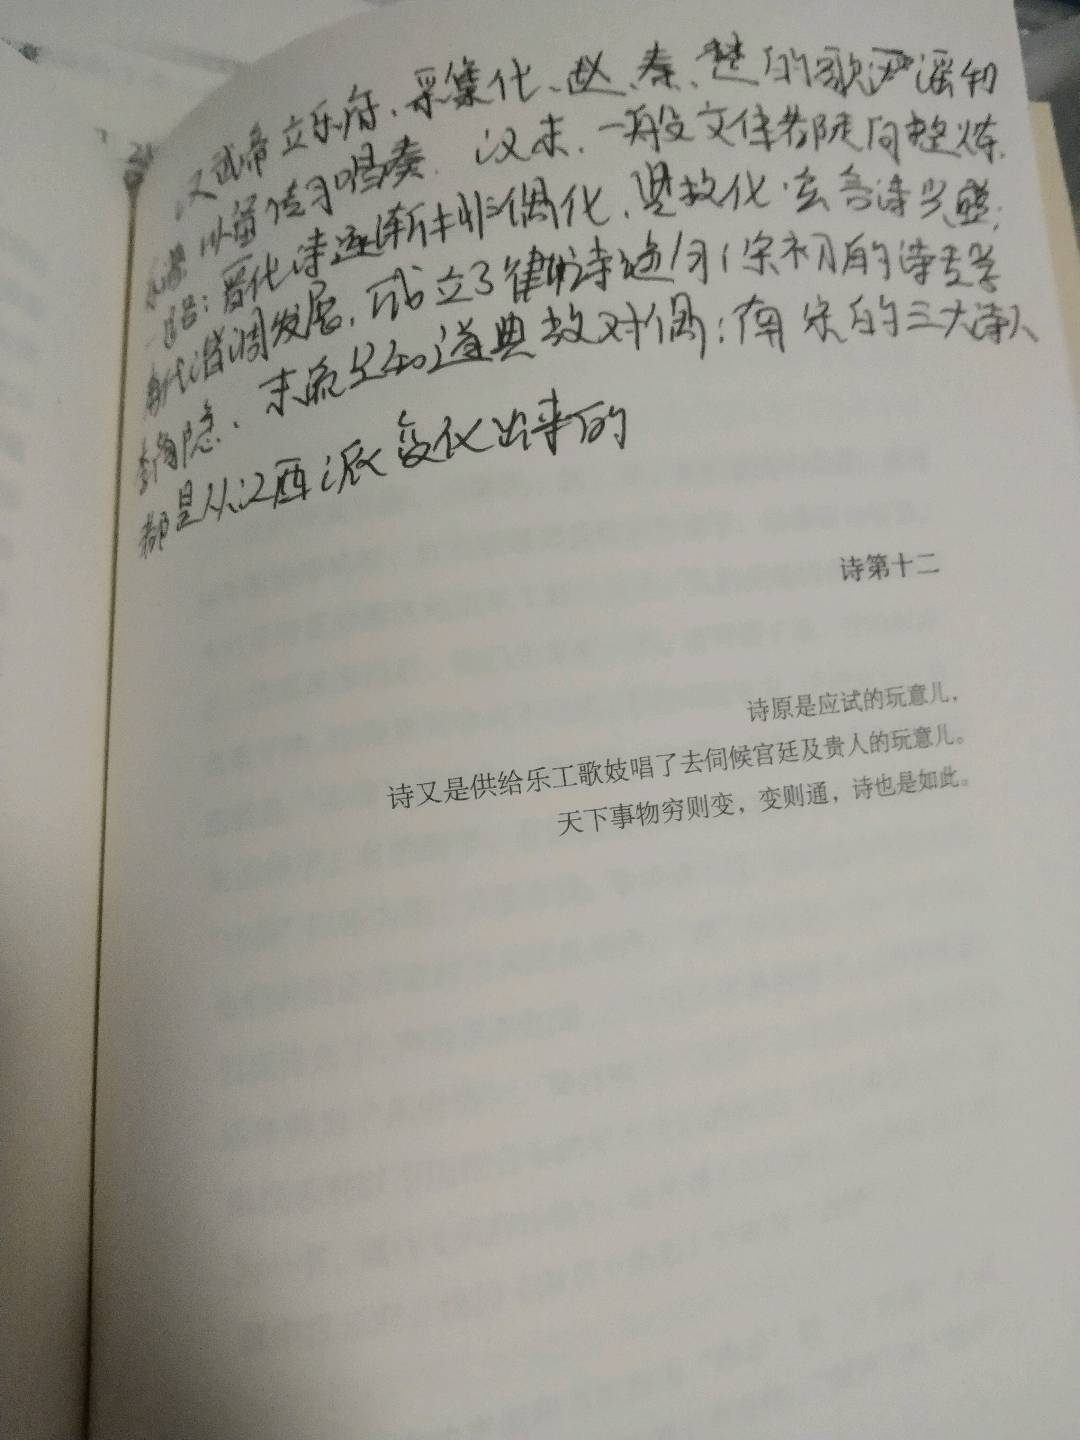 汉武帝立乐府，采集代、赵、秦、楚的歌谣和
乐谱。以备传习唱奏。汉末，一般文体都走向整炼
一路；晋代诗逐渐排偶化、典故化。玄言诗兴盛；
唐代谐调发展，成立了律诗绝句；宋初的诗专学
李商隐、末流只知道典故对偶；南宋的三大诗人
都是从江西派变化出来的
诗第十二
诗原是应试的玩意儿，
诗又是供给乐工歌妓唱了去伺候宫廷及贵人的玩意儿。
天下事物穷则变，变则通，诗也是如此。